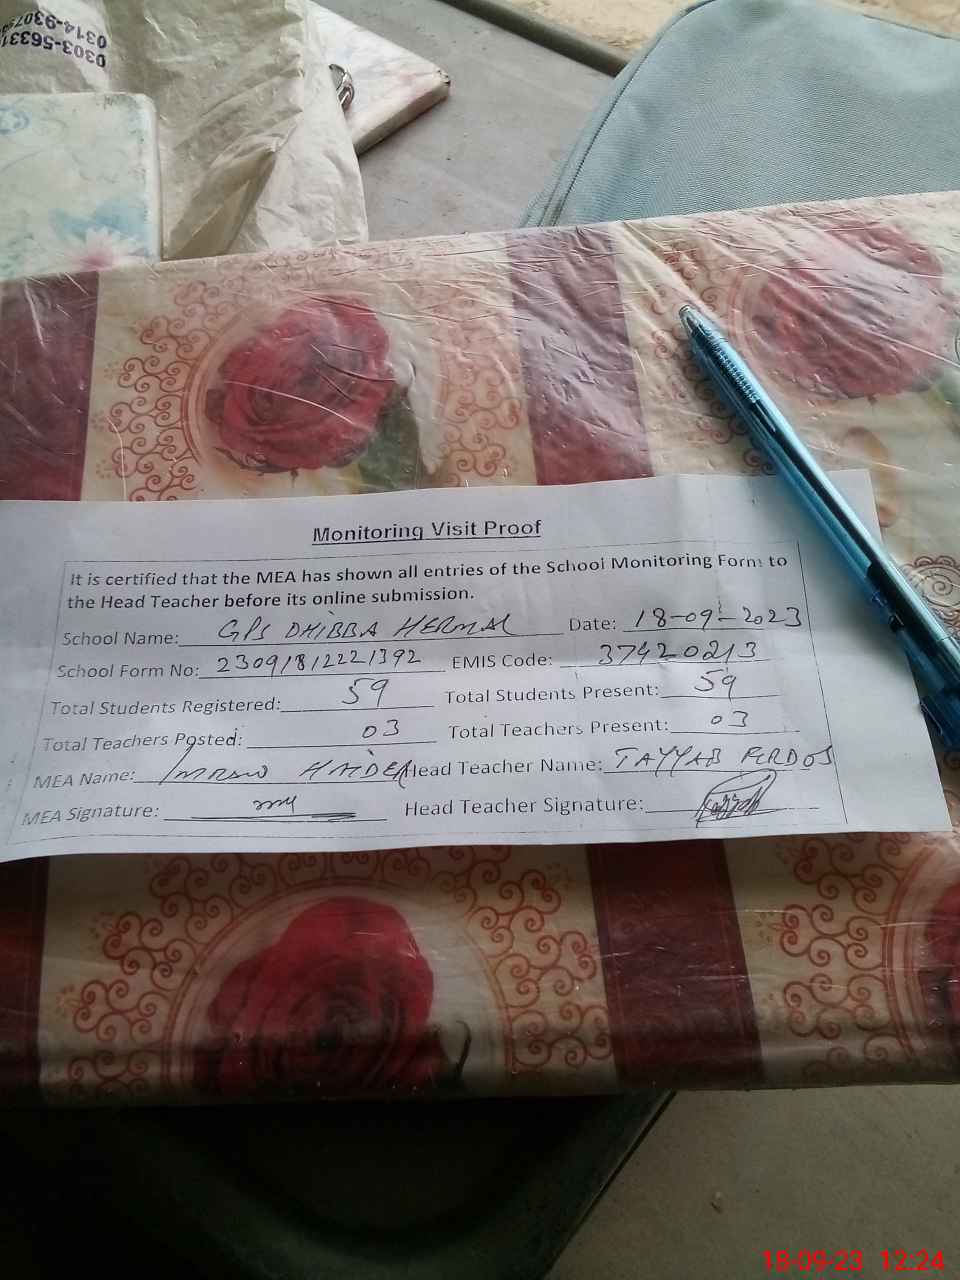 0303-5633
0314-930
Monitoring Visit Proof
It is certified that the MEA has shown all entries of the School Monitoring Form to
the Head Teacher before its online submission.
School Name: GPS DHIBBA HERMAL Date: 18-09-2023
School Form No: 23091812221392 EMIS Code: 37420213
Total Students Registered: 59 Total Students Present: 59
Total Teachers Posted: 03 Total Teachers Present: 03
MEA Name: HAIDER Head Teacher Name: TAYYAB FERDOS
MEA Signature: Head Teacher Signature:
18-09-23 12:24